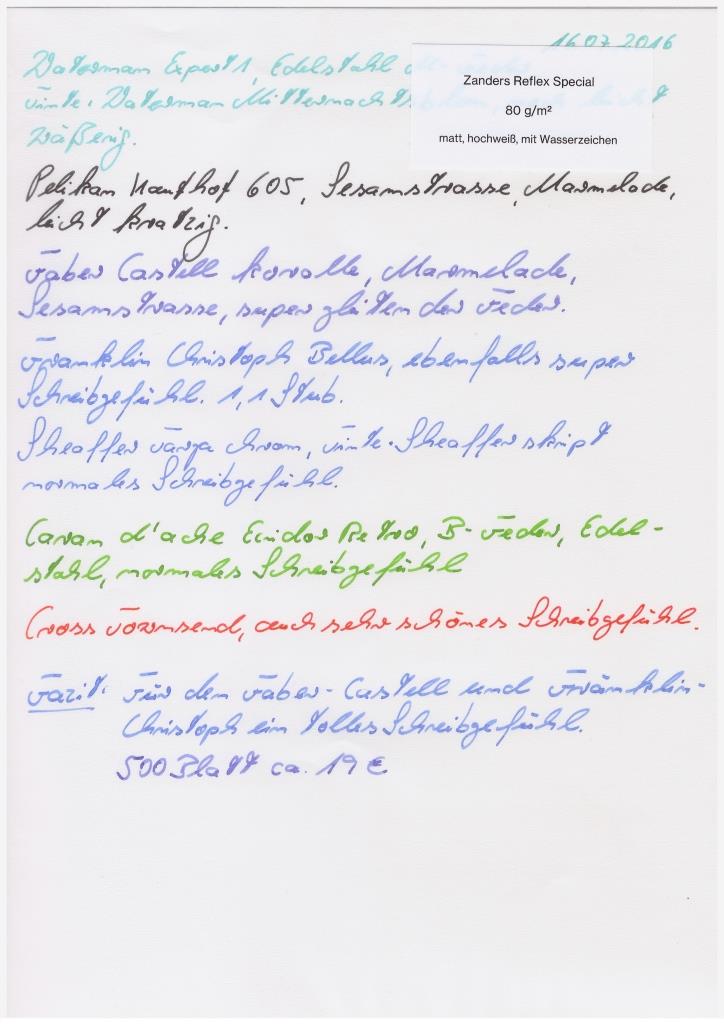 16.07.2016
Waterman Expert 1, Edelstahl M-Feder
Zanders Reflex Special
80 g/m²
matt, hochweiß, mit Wasserzeichen
Tinte: Waterman Mitternachtsblau, noch leicht
wäßerig.
Pelikan Kaufhof 605, Sesamstrasse, Marmelade,
leicht kratzig.
Faber Castell koralle, Marmelade,
Sesamstrasse, super gleitender Feder.
Franklin Christoph Bellus, ebenfalls super
Schreibgefühl. 1,1 Stub.
Sheaffer Targa chrom, Tinte: Sheaffer skript
normales Schreibgefühl.
Caran d'ache Ecridor Retro, B-Feder, Edel-
stahl, normales Schreibgefühl
Cross Townsend, auch sehr schönes Schreibgefühl.
Fazit: Für den Faber-Castell und Franklin-
Christoph ein tolles Schreibgefühl.
500 Blatt ca. 19 €